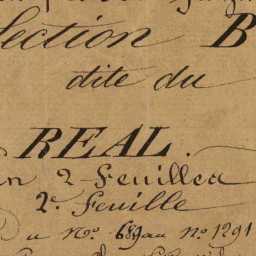 Section B
dite du
REAL.
en 2 Feuilles
2.e Feuille
Du N.o 689 au N.o 1291